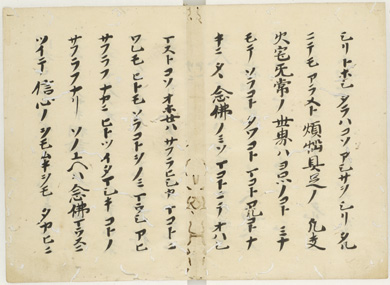 シリトホシタラハコソアシサヲシリタル
ニテモアラメト煩惱具足ノ凡夫
火宅无常ノ世界ハヨロツノコトミナ
モテソラコトタワコトマコトアルコトナ
キニタヽ念佛ノミソマコトニテオハシ
マストコソオホセハサフラヒシカマコトニ
ワレモヒトモソラコトヲノミマウシアヒ
サフラフナカニヒトツイタマシキコトノ
サフラフナリソノユヘハ念佛マウスニ
ツイテ信心ノヲモムキヲモタカヒニ